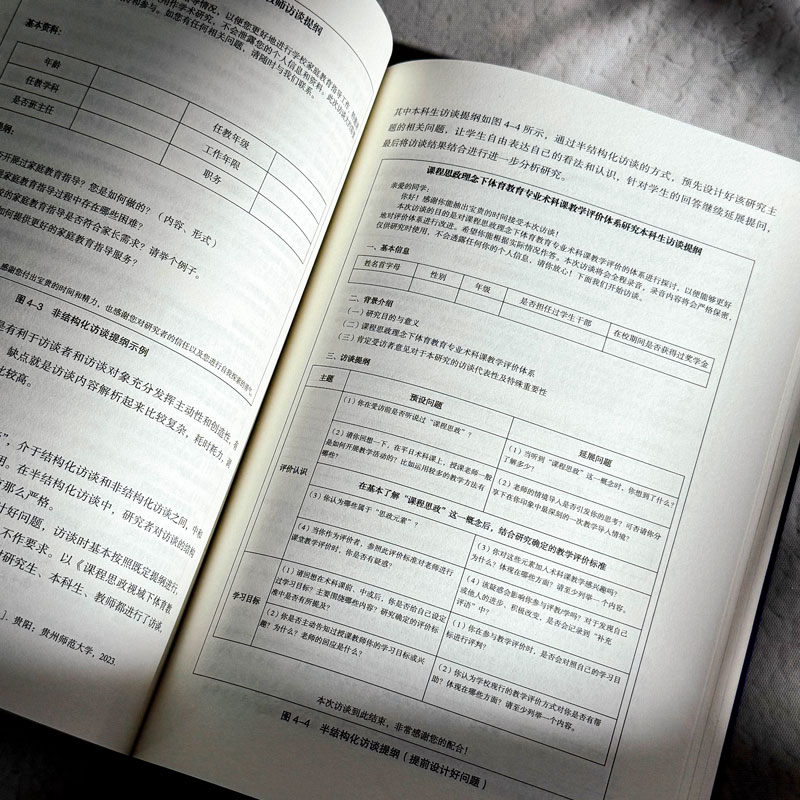 教师访谈提纲
情况，以便您更好地进行学校家庭教育指导工作，特邀请
用作学术研究，不会泄露您的个人信息和资料。此次访谈大约需要
和参与。如您有任何相关问题，请随时与我们联系。
基本资料：
年龄
任教学科 任教年级
是否班主任 工作年限
职务
提纲：
否开展过家庭教育指导？您是如何做的？（内容、形式）
家庭教育指导过程中存在哪些困难？
校的家庭教育指导是否符合家长需求？请举个例子。
如何提供更好的家庭教育指导服务？
感谢您付出宝贵的时间和精力，也感谢您对研究者的信任以及您进行自我探索的勇气。
图4-3 非结构化访谈提纲示例
是有利于访谈者和访谈对象充分发挥主动性和创造性，
缺点就是访谈内容解析起来比较复杂，耗时耗力，
比较高。
，介于结构化访谈和非结构化访谈之间，
用。在半结构化访谈中，研究者对访谈的结构
那么严格。
计好问题，访谈时基本按照既定提纲进行，
不作要求。以《课程思政视域下体育教
对研究生、本科生、教师都进行了访谈，
］. 贵阳：贵州师范大学，2023.
其中本科生访谈提纲如图 4-4 所示，通过半结构化访谈的方式，预先设计好该研究主
题的相关问题，让学生自由表达自己的看法和认识，针对学生的回答继续延展提问，
最后将访谈结果结合进行进一步分析研究。
课程思政理念下体育教育专业术科课教学评价体系研究本科生访谈提纲
亲爱的同学：
你好！感谢你能抽出宝贵的时间接受本次访谈！
本次访谈的目的是对课程思政理念下体育教育专业术科课教学评价的体系进行探讨，以便能够更好
地对评价体系进行改进。希望你能根据实际情况作答。本次访谈将会全程录音，录音内容将会严格保密，
仅供研究时使用，不会透露任何你的个人信息，请你放心！下面我们开始访谈。
一、基本信息
姓名首字母 性别 年级 是否担任过学生干部 在校期间是否获得过奖学金
二、背景介绍
（一）研究目的与意义
（二）课程思政理念下体育教育专业术科课教学评价体系
（三）肯定受访者意见对于本研究的访谈代表性及特殊重要性
三、访谈提纲
主题 预设问题 延展问题
评价认识
（1）你在受访前是否听说过“课程思政”？
（1）当听到“课程思政”这一概念时，你想到了什么？
了解多少？
（2）请你回想一下，在平日术科课上，授课老师一般
是如何开展教学活动的？比如运用较多的教学方法有
哪些？
（2）老师的情境导入是否引发你的思考？可否请你分
享下在你印象中最深刻的一次教学导入情境？
在基本了解“课程思政”这一概念后，结合研究确定的教学评价标准
（3）你认为哪些属于“思政元素”？
（3）你对这些元素加入术科课教学感兴趣吗？
为什么？体现在哪些方面？请至少列举一个内容。
（4）当你作为评价者，参照此评价标准对老师进行
课堂教学评价时，你是否有疑惑？
（4）该疑惑会影响你参与评教/学吗？对于发现自己
或他人的进步、积极改变，是否会记录到“补充
评语”中？
学习目标
（1）请回想在术科课前、中或后，你是否给自己设定
过学习目标？主要围绕哪些内容？研究确定的评价标
准中是否有所提及？
（1）你在参与教学评价时，是否会对照自己的学习目
标进行评判？
（2）你是否主动告知过授课教师你的学习目标或兴
趣？为什么？老师的回应是什么？
（2）你认为学校现行的教学评价方式对你是否有帮
助？体现在哪些方面？请至少列举一个内容。
本次访谈到此结束，非常感谢您的配合！
图 4-4 半结构化访谈提纲（提前设计好问题）